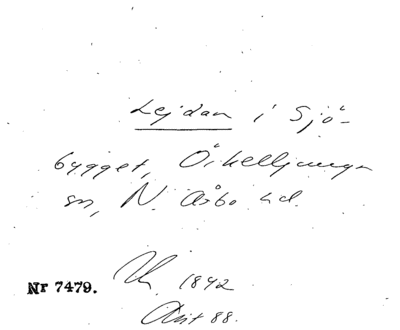 Lejdan i Sjö-
bygget, Örkelljunga
sn, N. Åsbo hd.
1842
Nr 7479.
88.